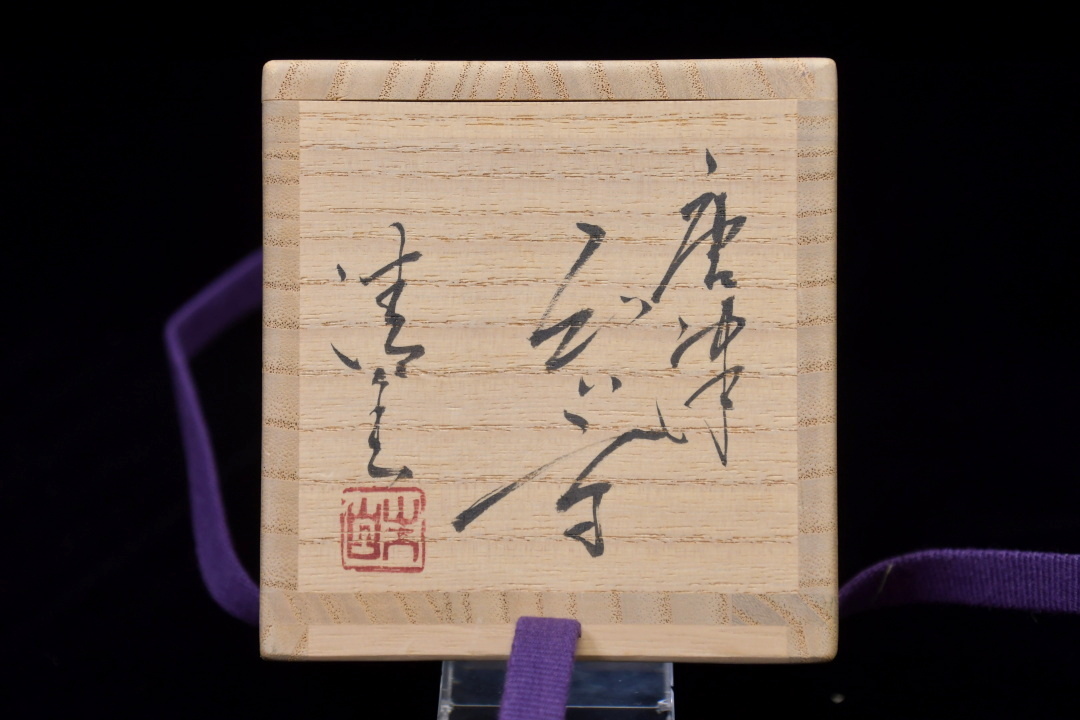 唐津
ぐい呑
清美